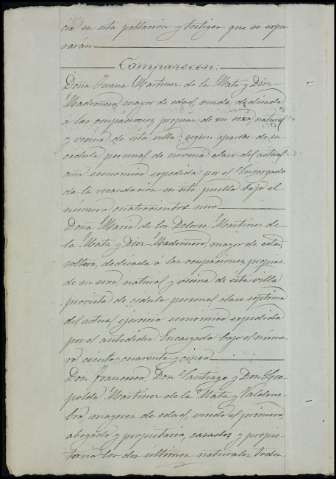 cia en esta poblacion y testigos que se expre
sarán
Comparecen.
Doña Juana Martinez de la Mata y Diez
Madroñero, mayor de edad, viuda, dedicada
á las ocupaciones propias de su sexo, natural
y vecina de esta villa, segun aparece de su
cedula personal de novena clase del actual
año economico expedida por el Encargado
de la recaudacion en este pueblo bajo el
número cuatrocientos uno
Doña Maria de los Dolores Martinez de
la Mata y Diez Madroñero, mayor de edad
soltera, dedicada á las ocupaciones propias
de su sexo natural y vecina de esta villa
provista de cedula personal clase septima
del actual ejercicio economico expedida
por el antedicho Encargado bajo el núme
ro ciento cuarenta y cinco
Don Francisco, Don Santiago y Don Leo
poldo Martinez de la Mata y
mayores de edad, viudo el primero
abogado y propietario, casados y propie
tarios los dos ultimos naturales todos